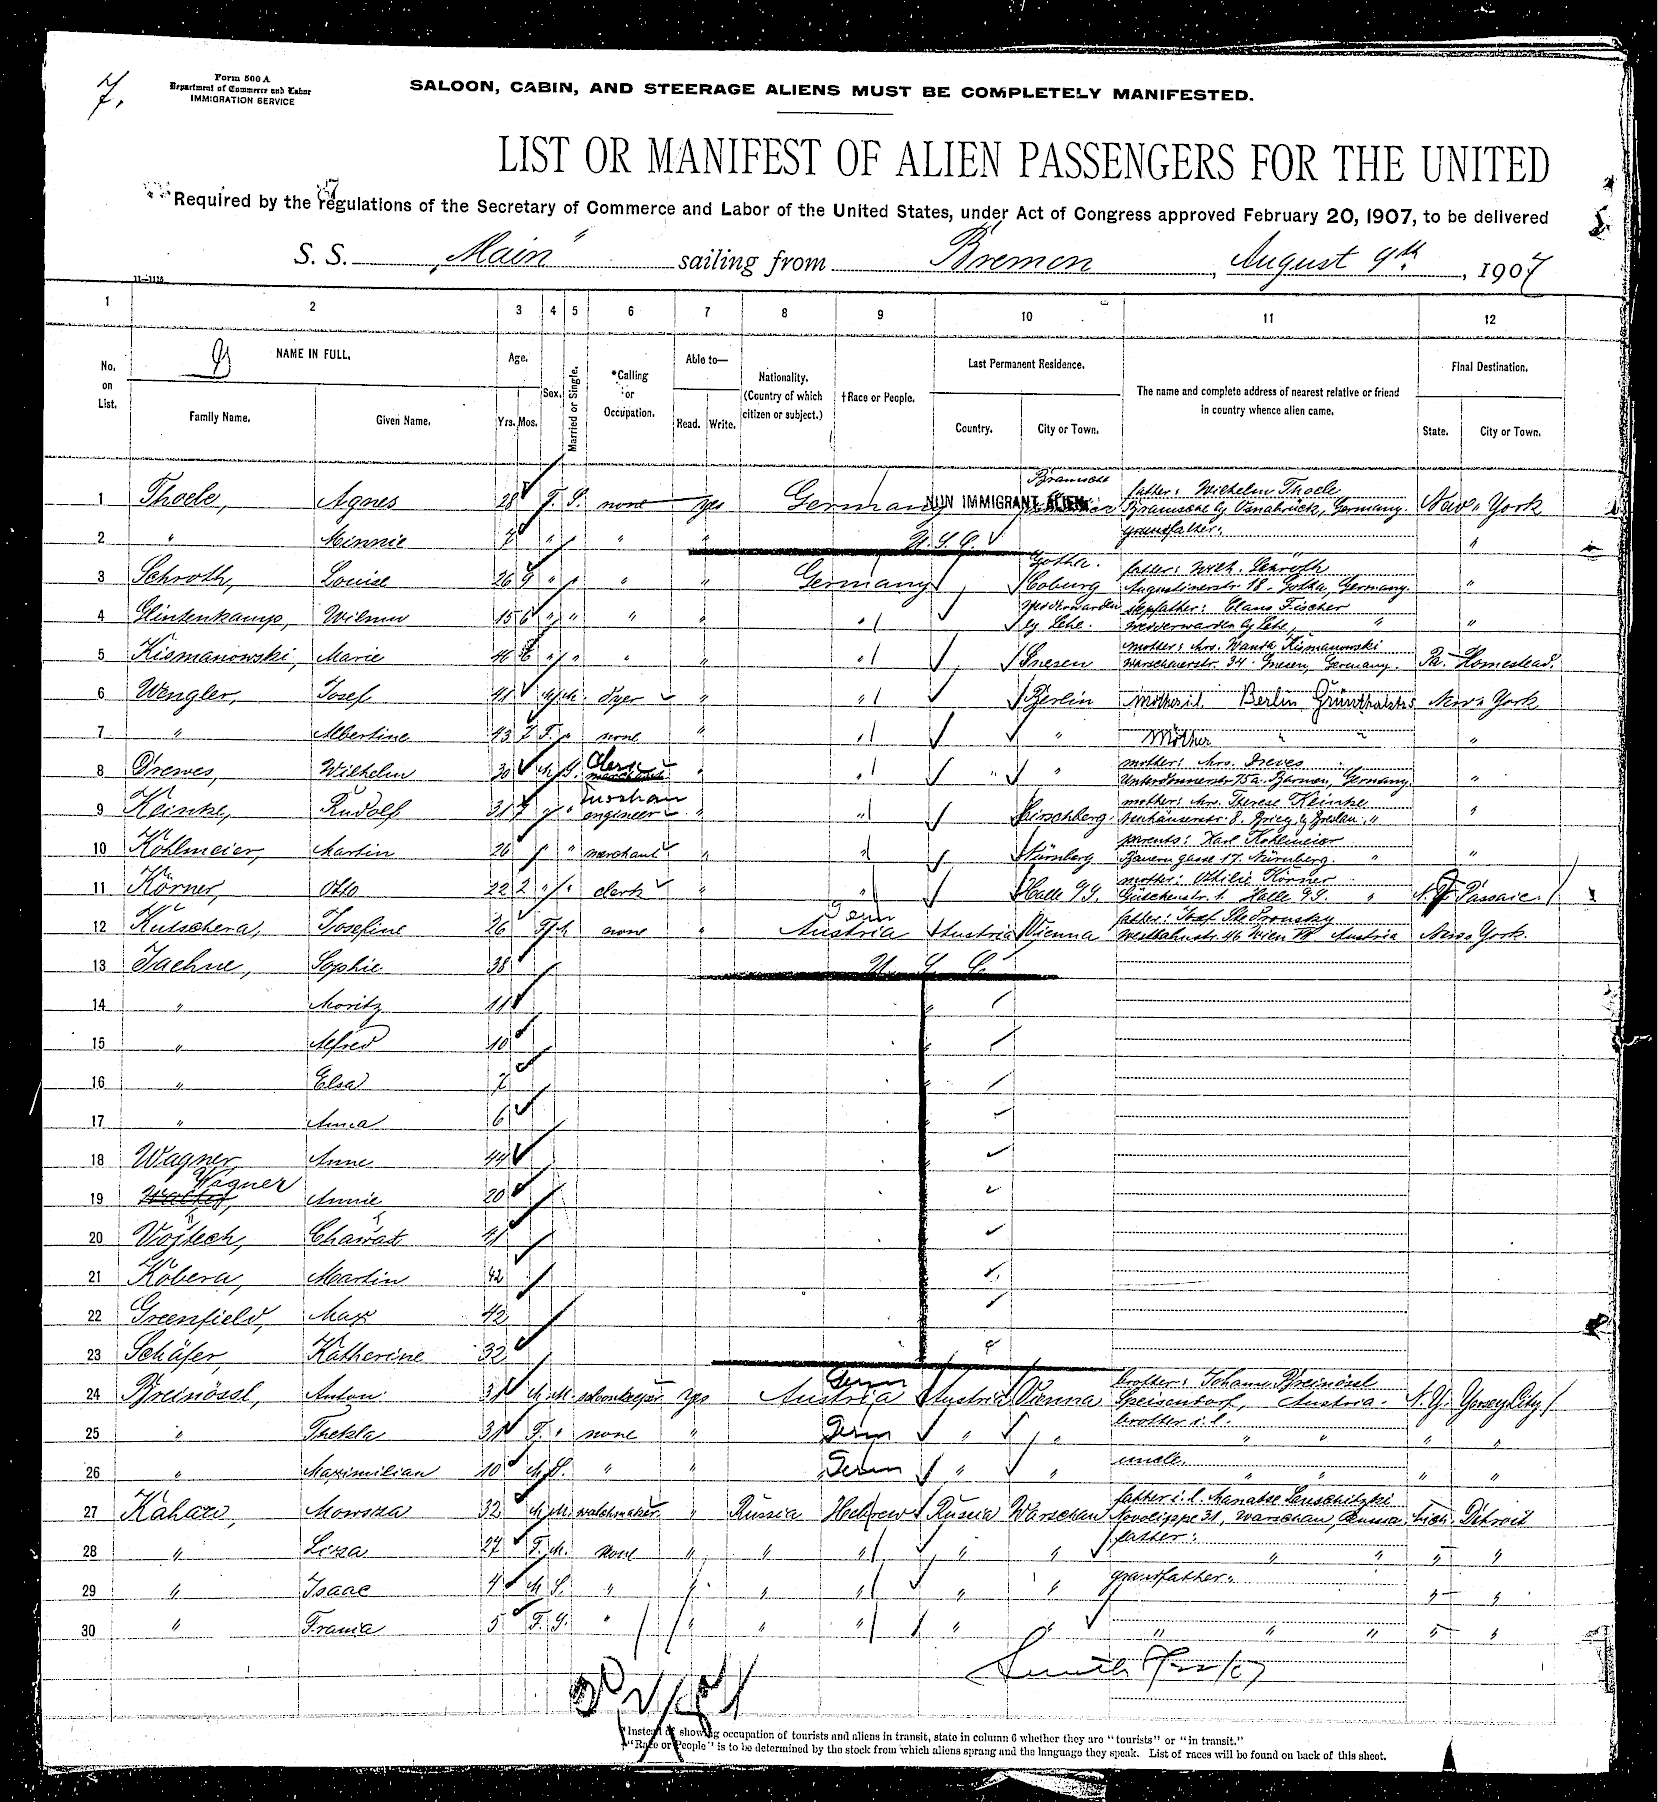 7.
Form 500 A
Department of Commerce and Labor
IMMIGRATION SERVICE
SALOON, CABIN, AND STEERAGE ALIENS MUST BE COMPLETELY MANIFESTED.
LIST OR MANIFEST OF ALIEN PASSENGERS FOR THE UNITED
Required by the regulations of the Secretary of Commerce and Labor of the United States, under Act of Congress approved February 20, 1907, to be delivered
S. S. „Main" sailing from Bremen, August 9th, 1907
1 2 3 4 5 6 7 8 9 10 11 12
No. on List.
NAME IN FULL.
Family Name. Given Name.
Age.
Yrs. Mos.
Sex.
Married or Single.
*Calling or Occupation.
Able to—
Read. Write.
Nationality. (Country of which citizen or subject.)
†Race or People.
Last Permanent Residence.
Country. City or Town.
The name and complete address of nearest relative or friend in country whence alien came.
Final Destination.
State. City or Town.
1 Thoele, Agnes 28 F. S. none yes Germany NON IMMIGRANT ALIEN Bramsche father: Wilhelm Thoele Bramsche b/ Osnabrück, Germany. New York
2 " Minnie 7 " " " " U. S. C. grandfather: "
3 Schroth, Louise 26 9 " " " " Germany Gotha. Coburg father: Wilh. Schroth Augustinerstr. 18. Gotha, Germany. "
4 Glintenkamp, 15 6 " " " " " b/ Lehe. stepfather: Claus Fischer b/ Lehe, " "
5 Kismanowski, Marie 46 " " " " " Gnesen mother: Mrs. Wanda Kismanowski Warschauerstr. 34. Gnesen, Germany. Pa. Homestead.
6 Wengler, Josef 41 M. M. dyer " " Berlin Mother i. l. Berlin New York
7 " Albertine 43 7 F. " none " " " Mother " " "
8 Drewes, Wilhelm 30 M. S. Clerk " " " mother: Mrs. Dreves 75a. Barmen, Germany. "
9 Keinke, Rudolf 31 7 " " engineer " " Hirschberg. mother: Mrs. Therese Keinke 8. Brieg b/ Breslau. " "
10 Kohlmeier, Martin 26 " " merchant " " Nürnberg parents: Karl Kohlmeier Bauerngasse 17. Nürnberg. " "
11 Körner, Otto 22 2 " " clerk " " Halle a/S. mother: Othilie Körner 1. Halle a/S. " N. J. Passaic.
12 Kutschera, Josefine 26 F. M. none " Austria Germ Austria Vienna father: Wien Austria New York.
13 Jaehne, Sophie 38 U. S. C.
14 " Moritz 11 "
15 " Alfred 10 "
16 " Elsa 7 "
17 " Anna 6 "
18 Wagner Anne 44 "
19 Wagner Annie 20
20 Vojtech, Chawat 41
21 Kobera, Martin 42
22 Greenfield, Max 42
23 Schäfer, Katherine 32
24 Breinössl, Anton 31 M. M. yes Austria Germ Austria Vienna brother: Johann Breinössl Geisendorf, Austria. N. J. Jersey City
25 " Thekla 31 F. " none " Germ " " brother i. l. " " " "
26 " Maximilian 10 M. S. " " Germ " " uncle. " " " "
27 Kahan, Mowsza 32 M. M. watchmaker " Russia Hebrew Russia Warschau father i. l. Novolippe 31, Warschau, Russia Mich. Detroit
28 " Lisa 27 F. M. none " " " " " father: " " " "
29 " Isaac 4 M. S. " " " " " " grandfather: " "
30 " Frania 5 F. S. " " " " " " " " " " "
*Instead of showing occupation of tourists and aliens in transit, state in column 6 whether they are "tourists" or "in transit."
†"Race or People" is to be determined by the stock from which aliens sprang and the language they speak. List of races will be found on back of this sheet.